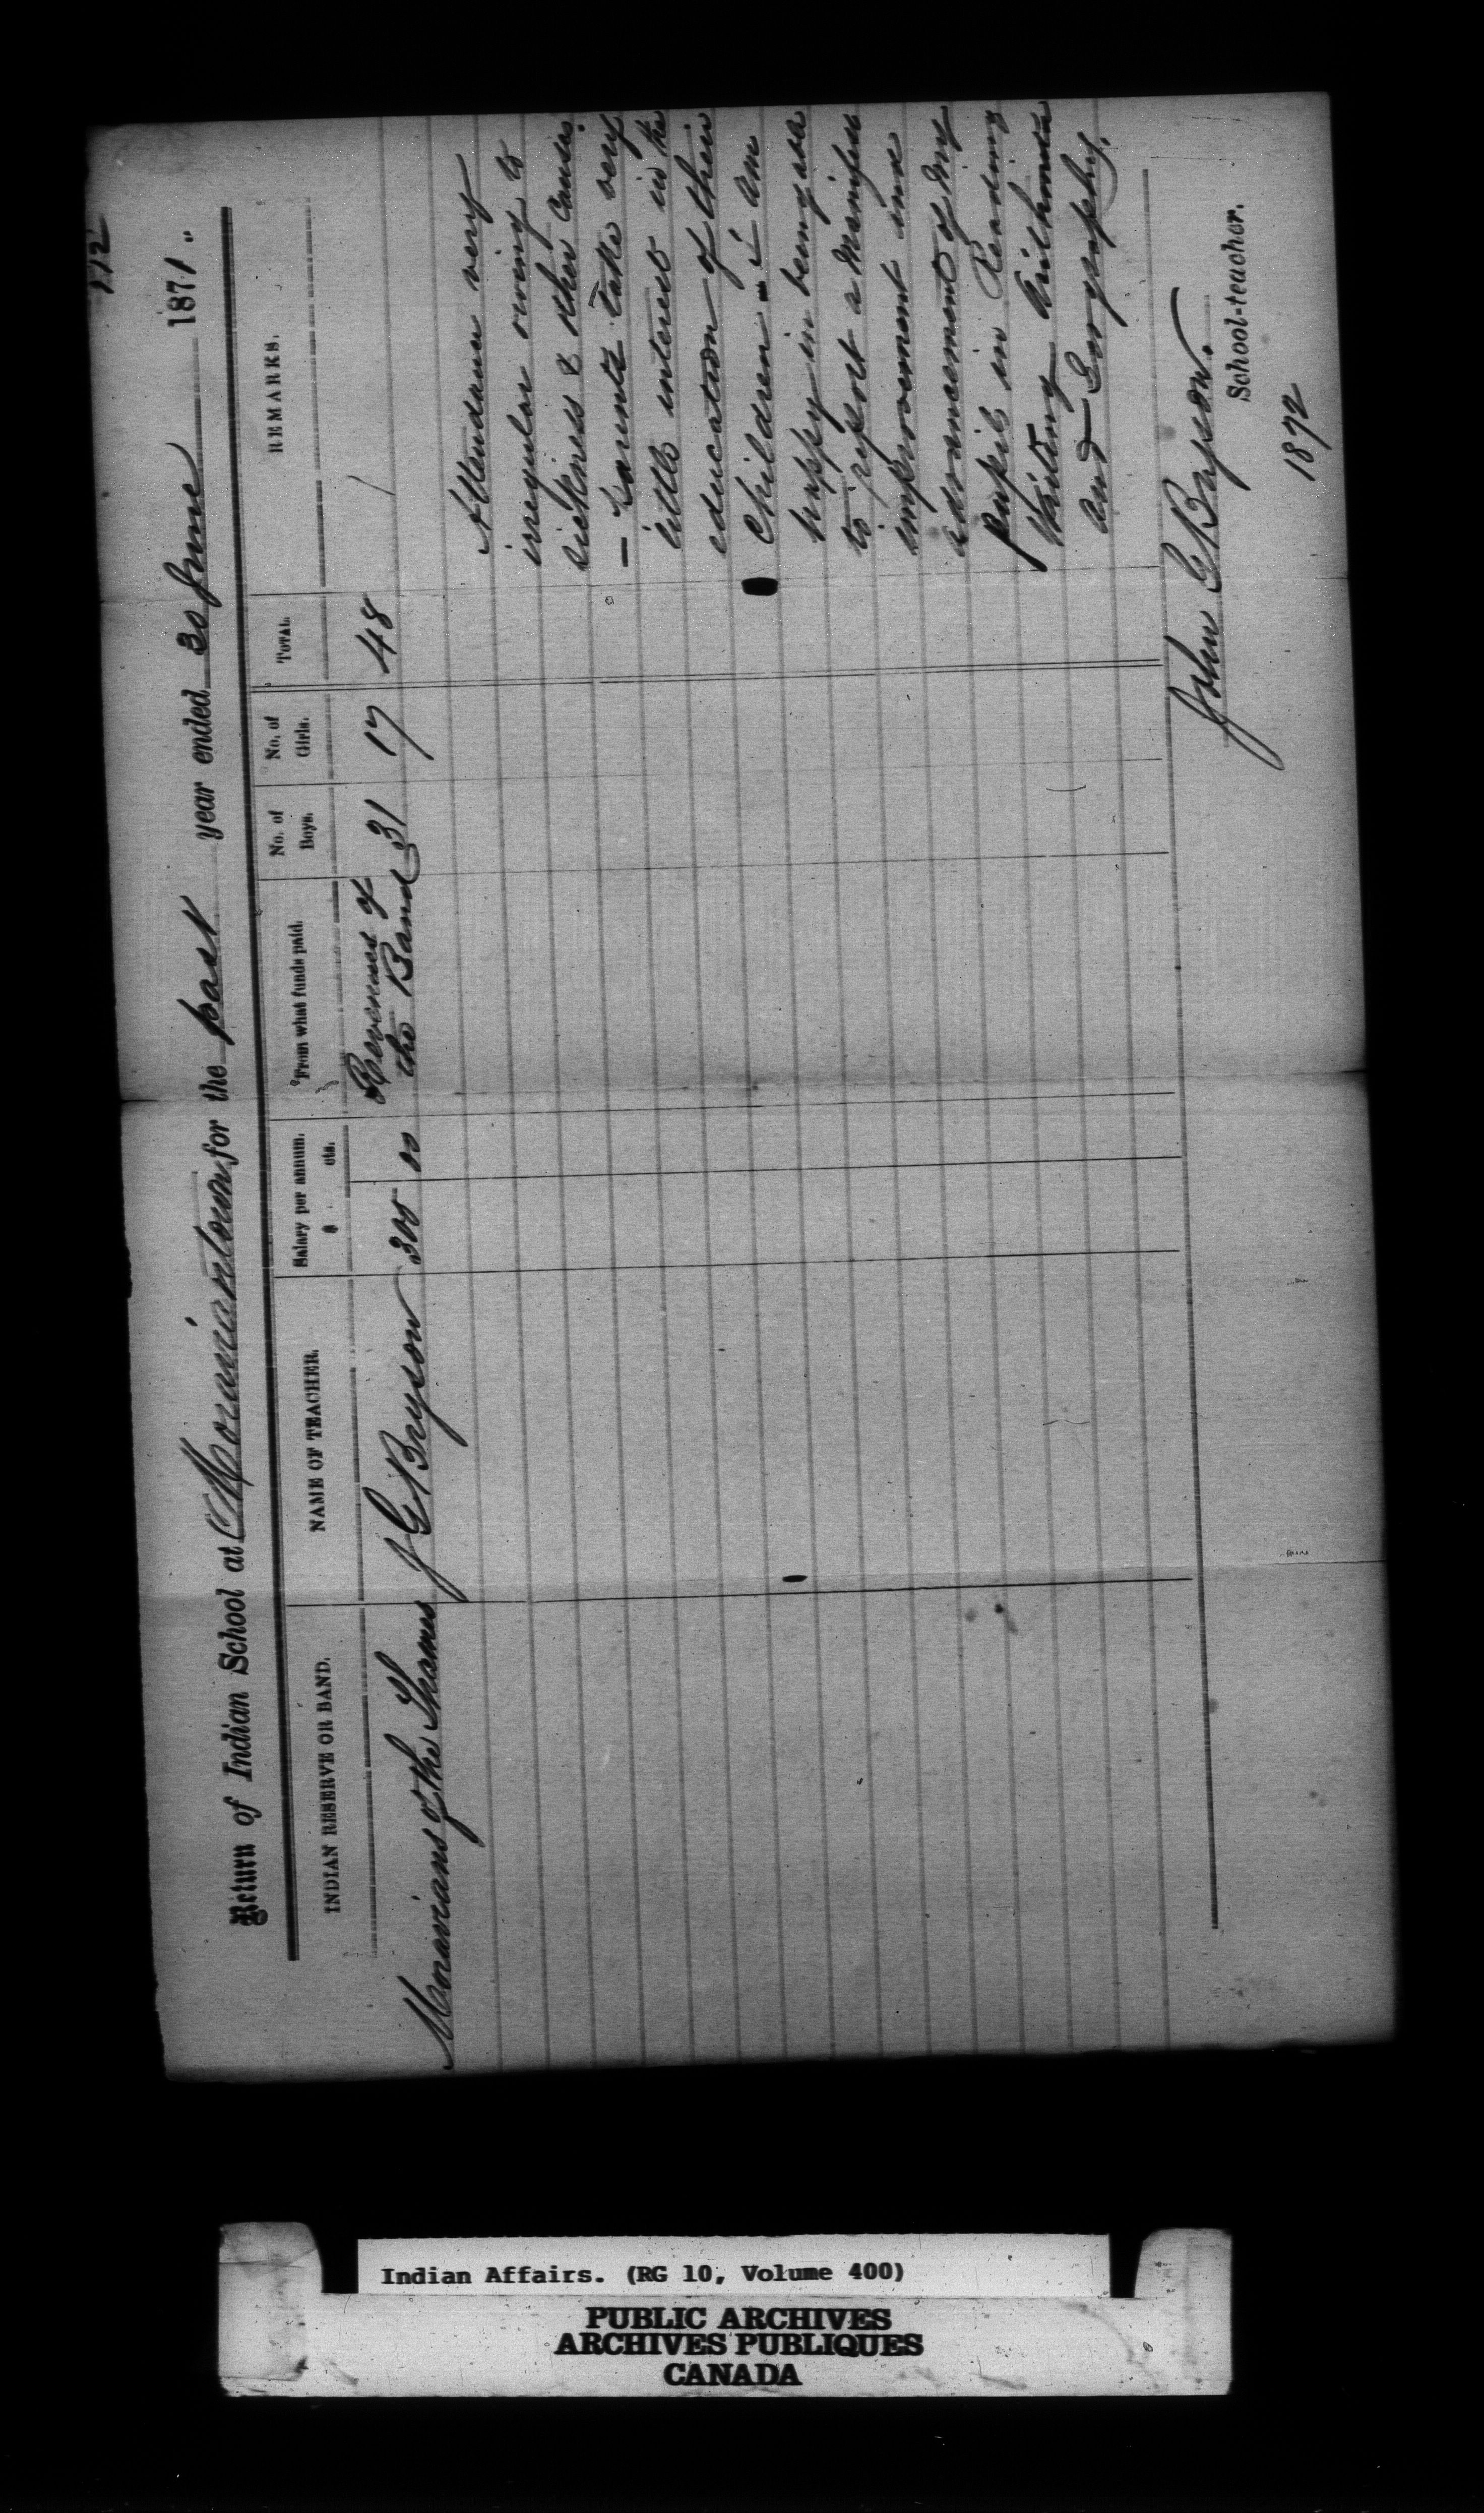 112
Return of Indian School at Moraviantown for the past year ended 30 June 1871.
INDIAN RESERVE OR BAND.
NAME OF TEACHER.
Salary per annum.
$ cts.
*From what funds paid.
No. of Boys.
No. of Girls.
TOTAL.
REMARKS.
Moravians of the Thames
J G Bryson
300 00
Revenues of
the Band
31
17
48
Attendance very
irregular owing to
sickness & other Causes.
- Parents Take very
little interest in the
education of their
Children - I am
happy in being able
to report a Manifest
improvement and
advancement of my
pupils in Reading
Writing Arithmetic
and Geography.
John G Bryson.
School-teacher.
1872
Indian Affairs. (RG 10, Volume 400)
PUBLIC ARCHIVES
ARCHIVES PUBLIQUES
CANADA